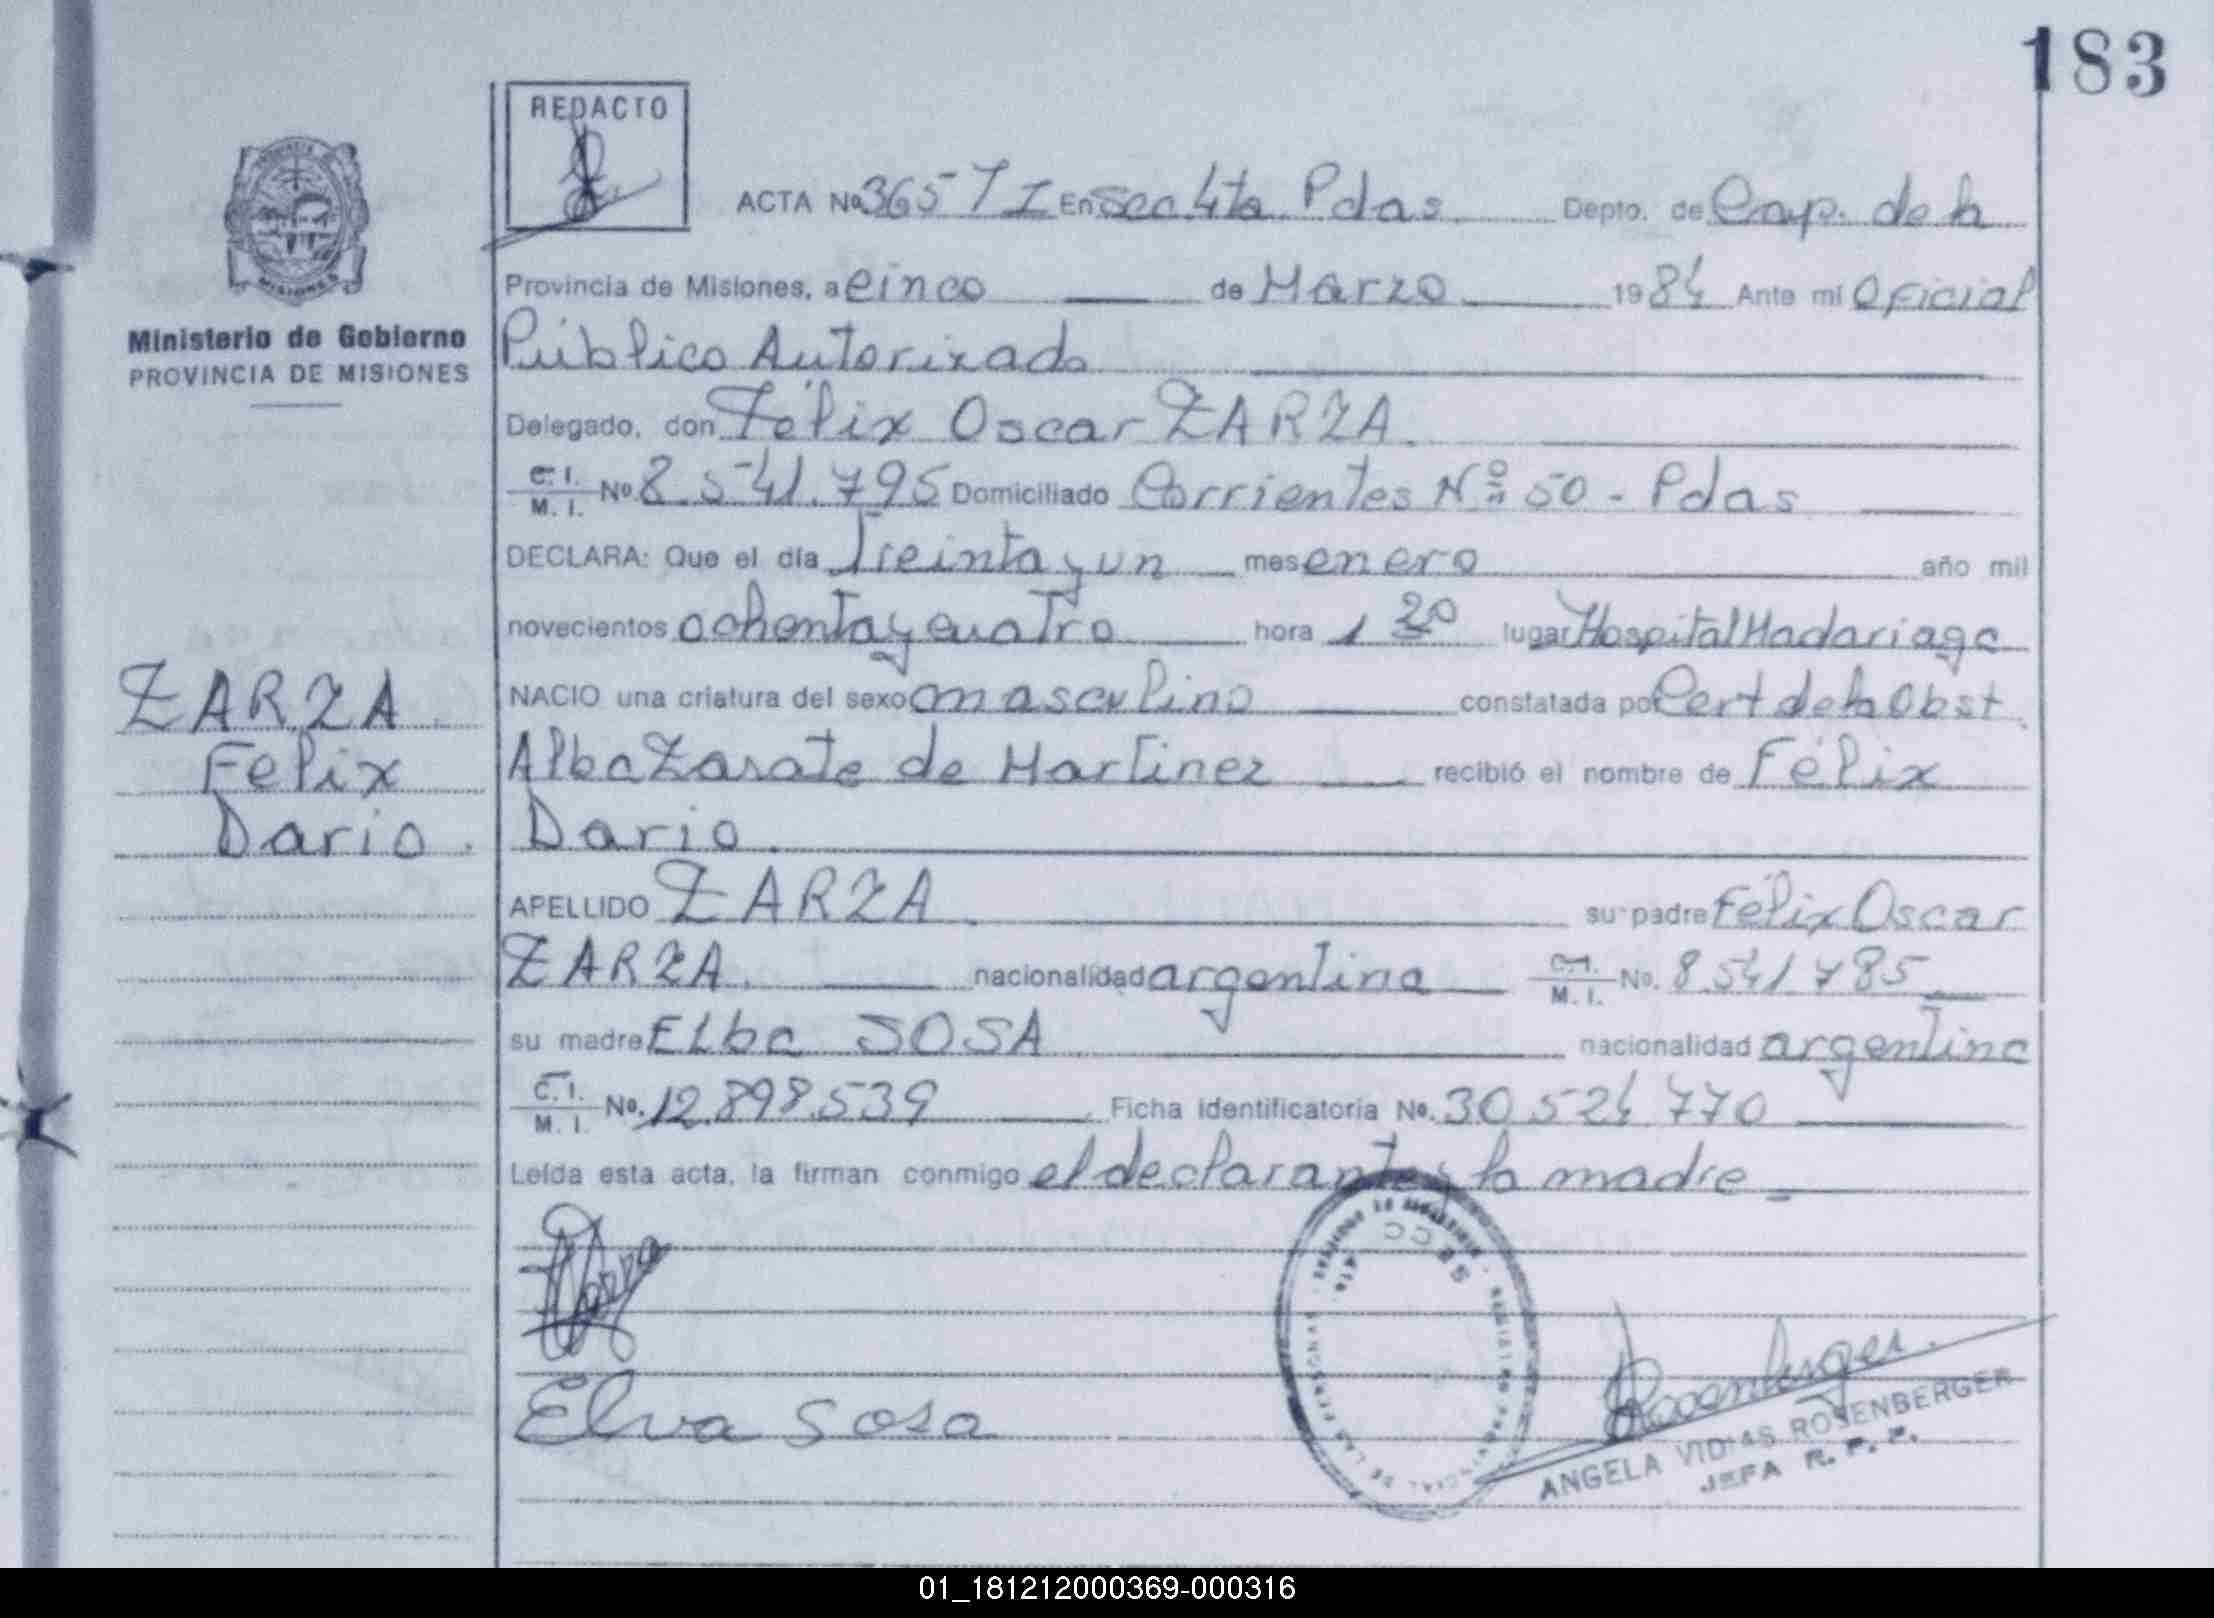 183
REDACTO
ACTA No. 365 T I En Secc 4ta Pdas Depto. de Cap. de la
Provincia de Misiones, a cinco de Marzo 1984 Ante mi Oficial
Ministerio de Gobierno
PROVINCIA DE MISIONES
Público Autorizado
Delegado, don Félix Oscar ZARZA.
C. I. / M. I. No. 8.541.795 Domiciliado Corrientes Nº 50 - Pdas
DECLARA: Que el día Treinta y un mes enero año mil
novecientos ochenta y cuatro hora 1 20 lugar Hospital Madariaga
NACIO una criatura del sexo masculino constatada por Cert de la Obst.
Alba Zarate de Martinez recibió el nombre de Félix
Dario.
ZARZA.
Felix
Dario.
APELLIDO ZARZA. su padre Félix Oscar
ZARZA. nacionalidad argentina C. I. / M. I. No. 8 541 785
su madre Elba SOSA nacionalidad argentina
C. I. / M. I. No. 12.898.539 Ficha identificatoria No. 30 524 770
Leída esta acta, la firman conmigo el declarante y la madre
Elva Sosa
Rosenberger
ANGELA VIDIAS ROSENBERGER
JEFA R. P. P.
01_181212000369-000316